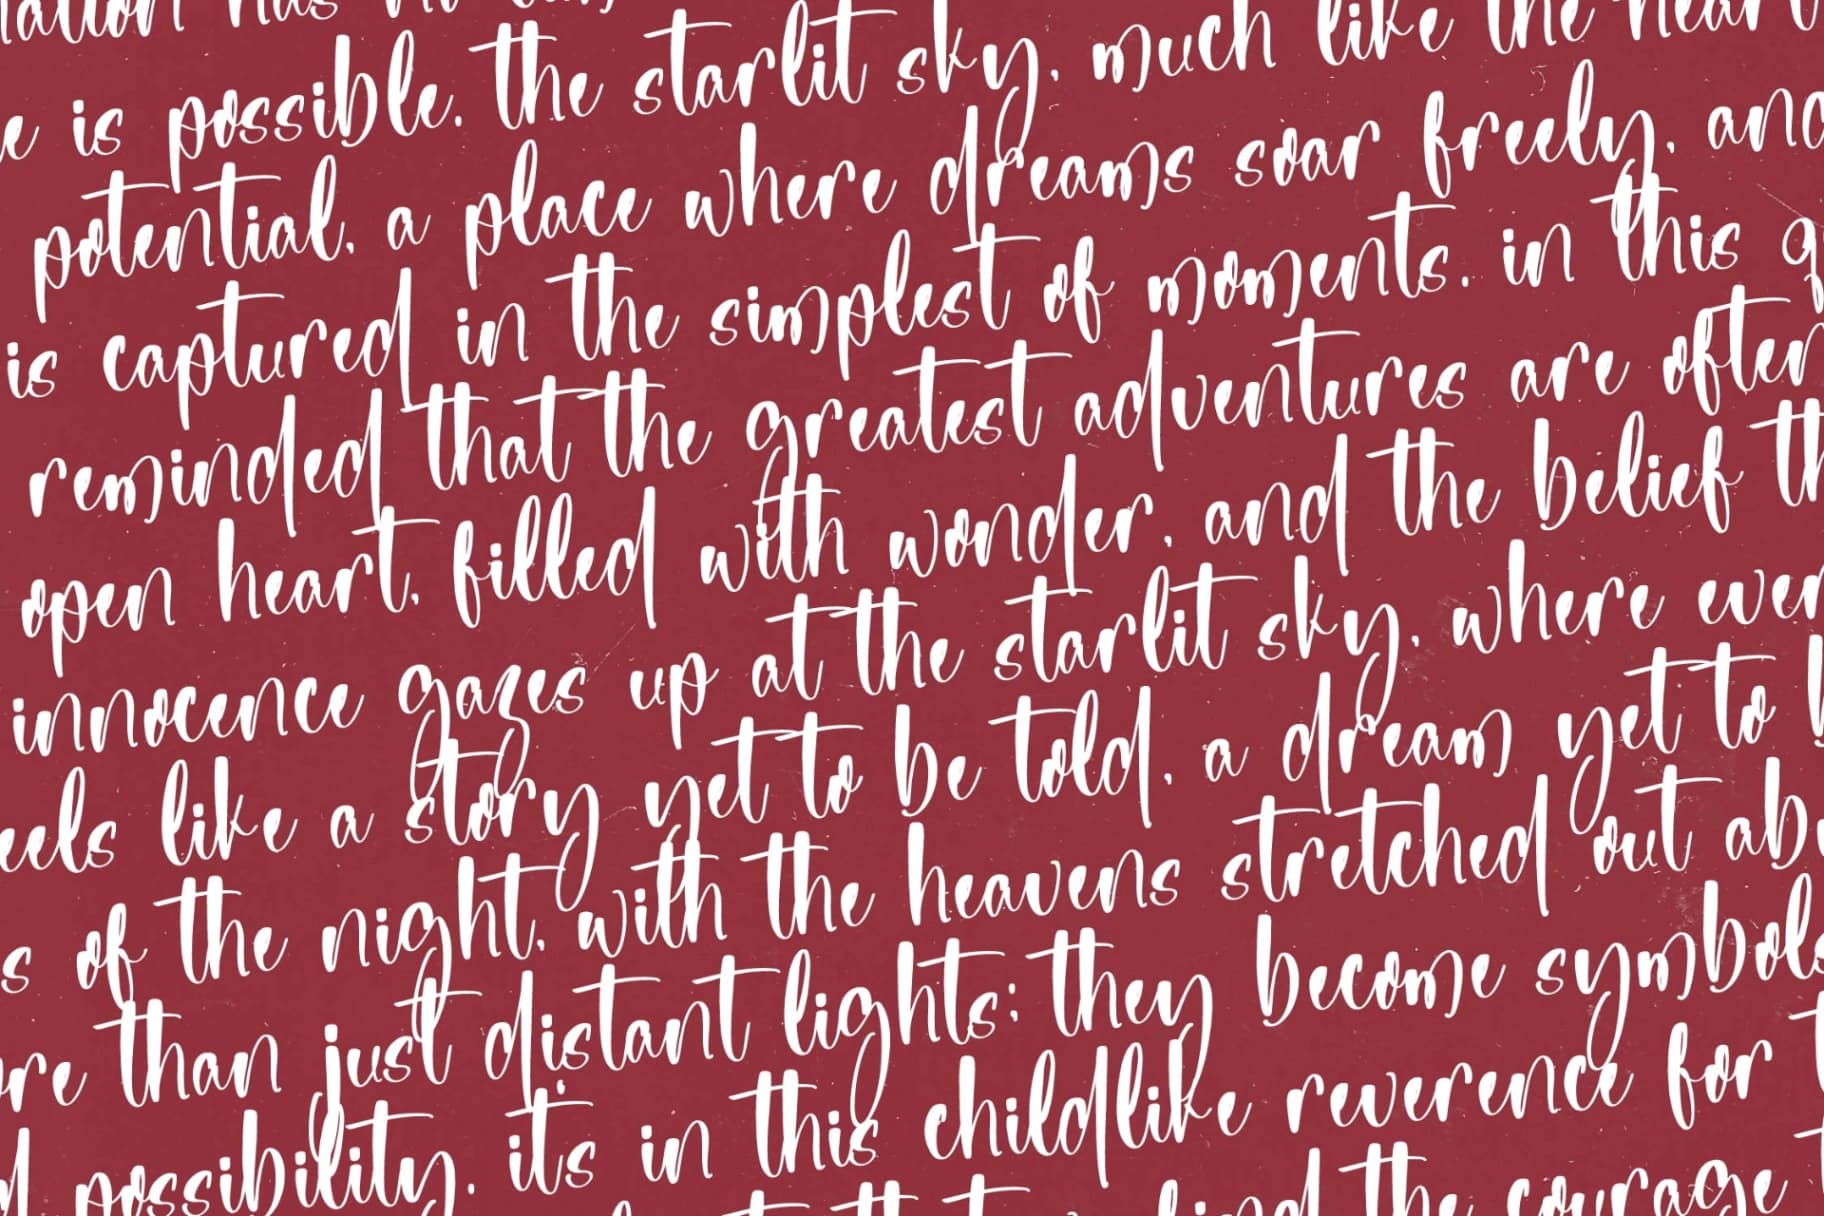 has no
is possible. the starlit sky, much like the heart
potential, a place where dreams soar freely, and
is captured in the simplest of moments. in this
reminded that the greatest adventures are often
open heart, filled with wonder, and the belief
innocence gazes up at the starlit sky, where
like a story yet to be told, a dream yet to
of the night, with the heavens stretched out
than just distant lights; they become symbols
possibility. it's in this childlike reverence for
the courage